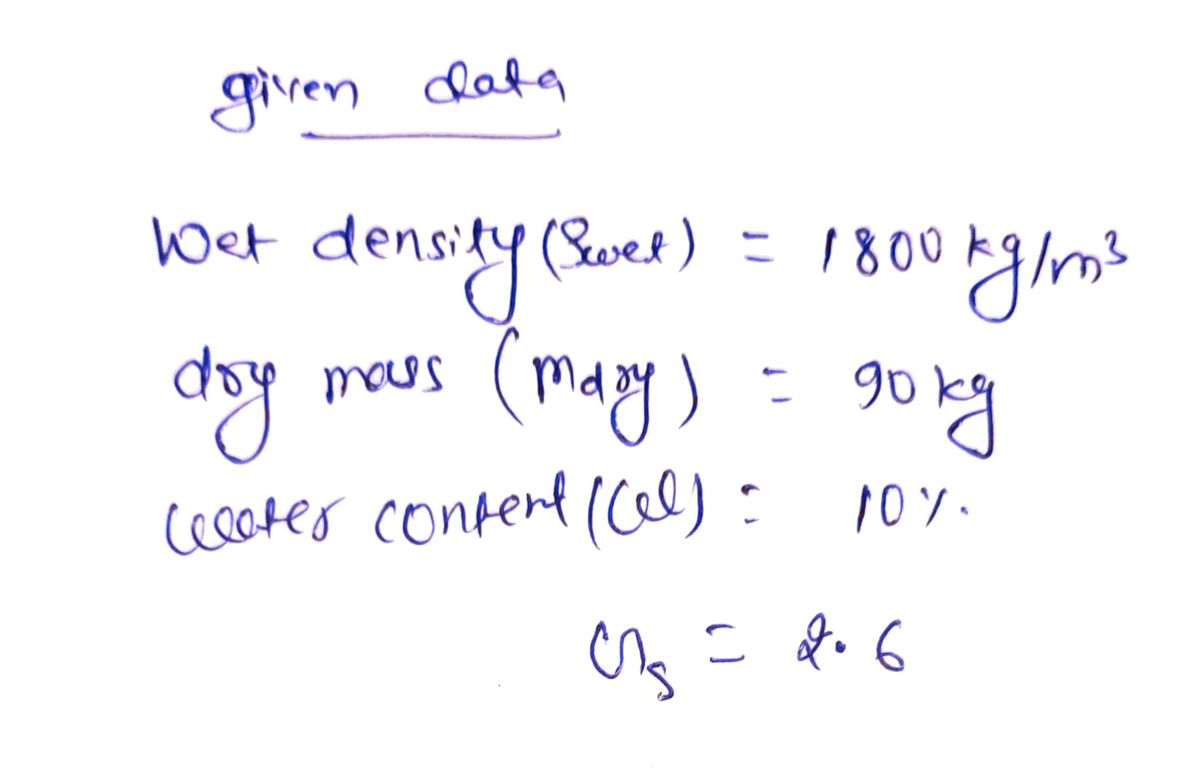 given data
Wet density (ρwet) = 1800 kg/m³
dry mass (mdry) = 90 kg
water content (w) = 10%.
Gs = 2.6